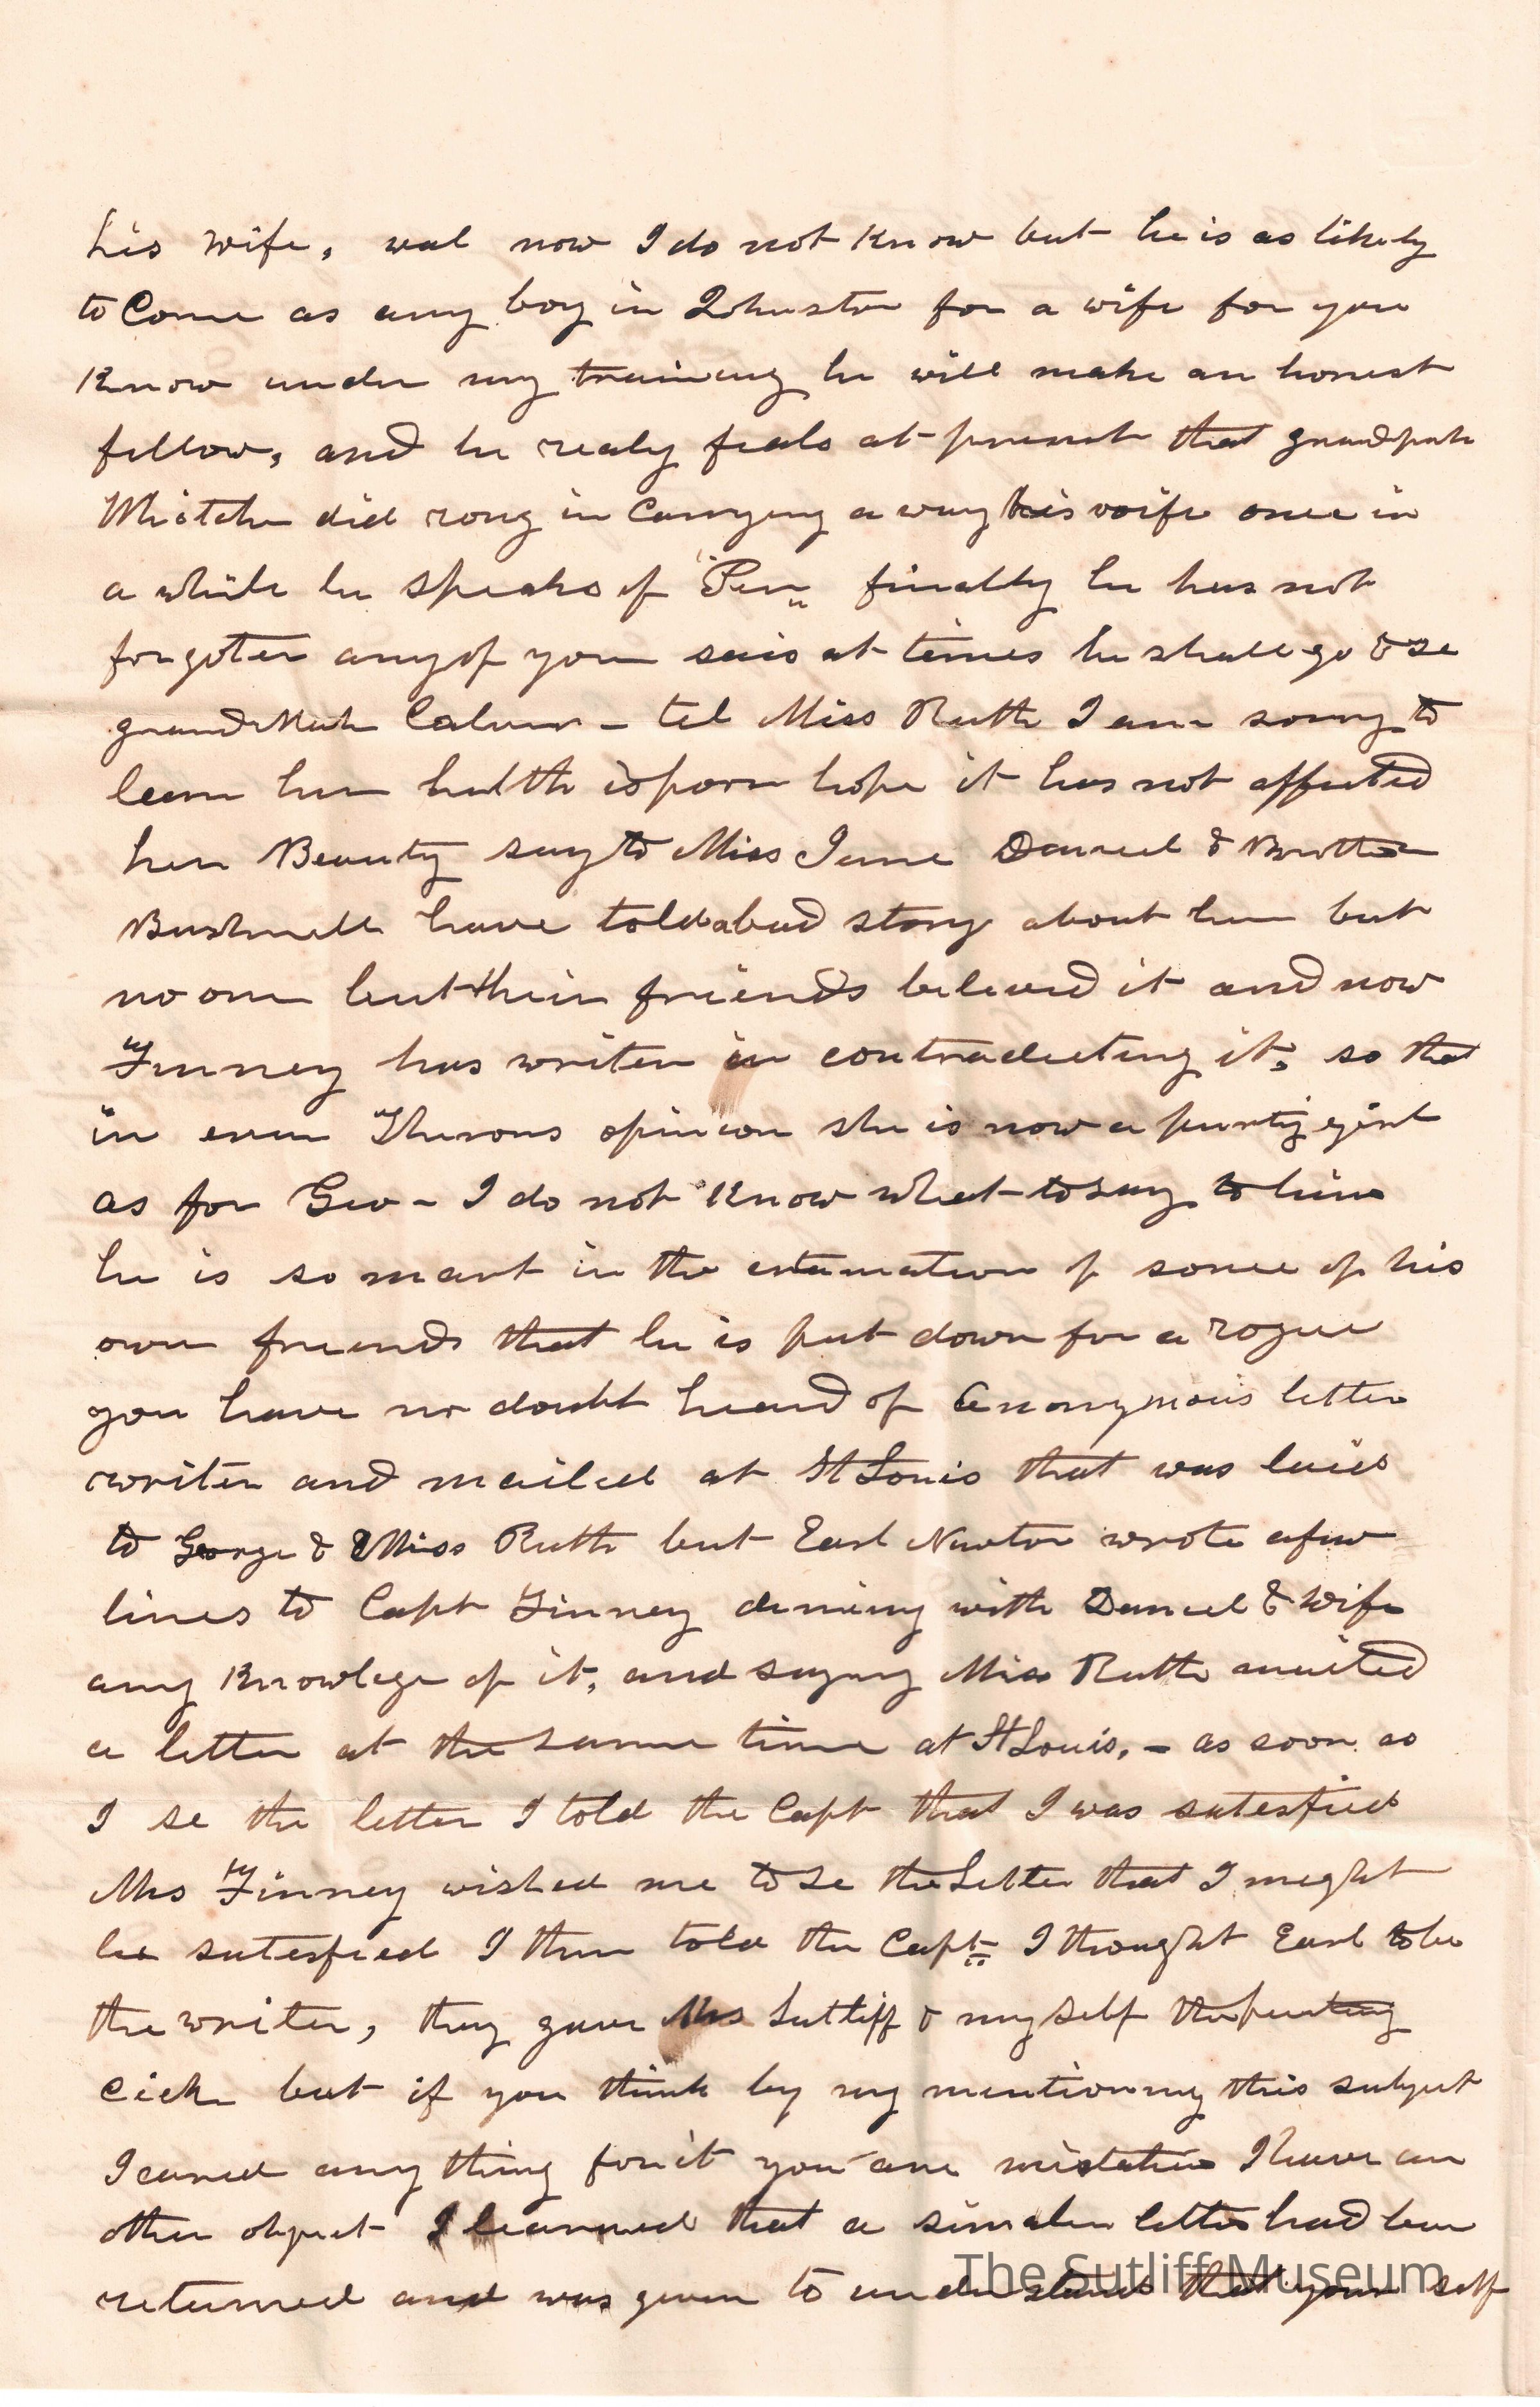 his wife, wal now I do not Know but he is as likely
to Come as any boy in Johnston for a wife for you
Know under my training he will make an honest
fellow, and he realy feals at present that grandpah
did rong in Carrying a way his wife once in
a while he speaks of "Pen" finally he has not
forgoten any of you sais at times he shall go & se
grandMah Calvin - tel Miss Ruth I am sorry to
learn her helth is poor hope it has not affected
her Beauty say to Miss Jane Daniel & Brother
Bushnell have told a bad story about her but
no one but their friends beleved it and now
Finney has writen in contradicting it, so that
in even Therons opinion she is now a purty girl
as for Geo - I do not Know what to say to him
he is so mart in the estamation of some of his
own friends that he is put down for a rogue
you have no doubt heard of Anonymous letter
writen and mailed at St Louis that was laied
to George & Miss Ruth but Earl Newton wrote a few
lines to Capt Finney dening with Daniel & Wife
any Knowlege of it, and saying Miss Ruth
a letter at the same time at St Louis, - as soon as
I se the letter I told the Capt that I was satesfied
Mrs Finney wished me to se the Letter that I meght
be satesfied I then told the Capt I thought Earl to be
the writer, they gave Mrs Sutliff & my self the parting
but if you think by my mentioning this subject
I cared any thing for it you are mistaken I have an
other object I learned that a simaler letter had been
returned and was given to understand that your self
The Sutliff Museum